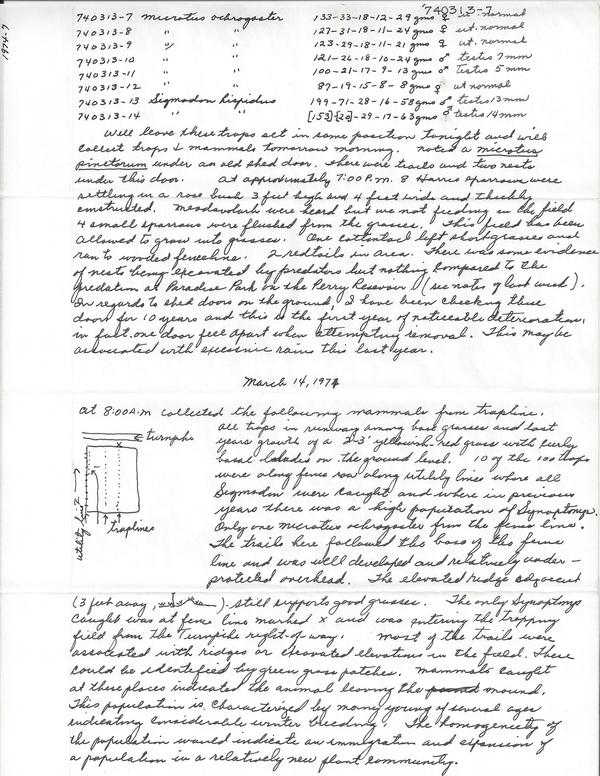 1974-7
740313-7
740313-7 Microtus ochrogaster 133-33-18-12-29 gms ♀ ut. normal
740313-8 " " 127-31-18-11-24 gms ♀ ut. normal
740313-9 " " 123-29-18-11-21 gms ♀ ut. normal
740313-10 " " 121-26-18-10-24 gms ♂ testis 7mm
740313-11 " " 100-21-17-9-13 gms ♂ testis 5mm
740313-12 " " 87-19-15-8-8 gms ♀ ut normal
740313-13 Sigmodon hispidus 199-71-28-16-58 gms ♂ testis 13mm
740313-14 " " [153]-[20]-29-17-63 gms ♂ testis 14mm
Will leave these traps set in same position tonight and will
collect traps & mammals tomorrow morning. Noted a microtus
pinetorum under an old shed door. There were trails and two nests
under this door. At approximately 7:00 P.M. 8 Harris sparrows were
settling in a rose bush 3 feet high and 4 feet wide and thickly
constructed. Meadowlark were heard but we not feeding in the field
4 small sparrows were flushed from the grasses. This field has been
allowed to grow into grasses. One cottontail left short grasses and
ran to wooded fenceline. 2 redtails in area. There was some evidence
of nests being excavated by predators but nothing compared to the
predation at Paradise Park on the Perry Resevoir (see notes of last week).
In regards to shed doors on the ground, I have been checking these
doors for 10 years and this is the first year of noticeable deterioration,
in fact one door fell apart when attempting removal. This may be
associated with excessive rains this last year.
March 14, 1974
at 8:00 A.M collected the following mammals from trapline.
All traps in runway among base grasses and last
years growth of a 2-3' yellowish-red grass with curly
basal blades on the ground level. 10 of the 100 traps
were along fence row along utility lines where all
Sigmodon were caught and where in previous
years there was a high population of Synaptomys.
Only one microtus ochrogaster from the fence line.
The trails here followed the base of the fence
line and was well developed and relatively under-
protected overhead. The elevated ridge adjacent
← turnpike
x
traplines
utility line →
(3 feet away, ). still supports good grasses. The only Synaptomys
caught was at fence line marked x and was entering the trapping
field from the Turnpike right-of-way. Most of the trails were
associated with ridges or elevated elevations in the field. These
could be identified by green grass patches. Mammals caught
at these places indicated the animal leaving the mound.
This population is characterized by many young of several ages
indicating considerable winter breeding. The homogeneity of
the population would indicate an immigration and expansion of
a population in a relatively new plant community.